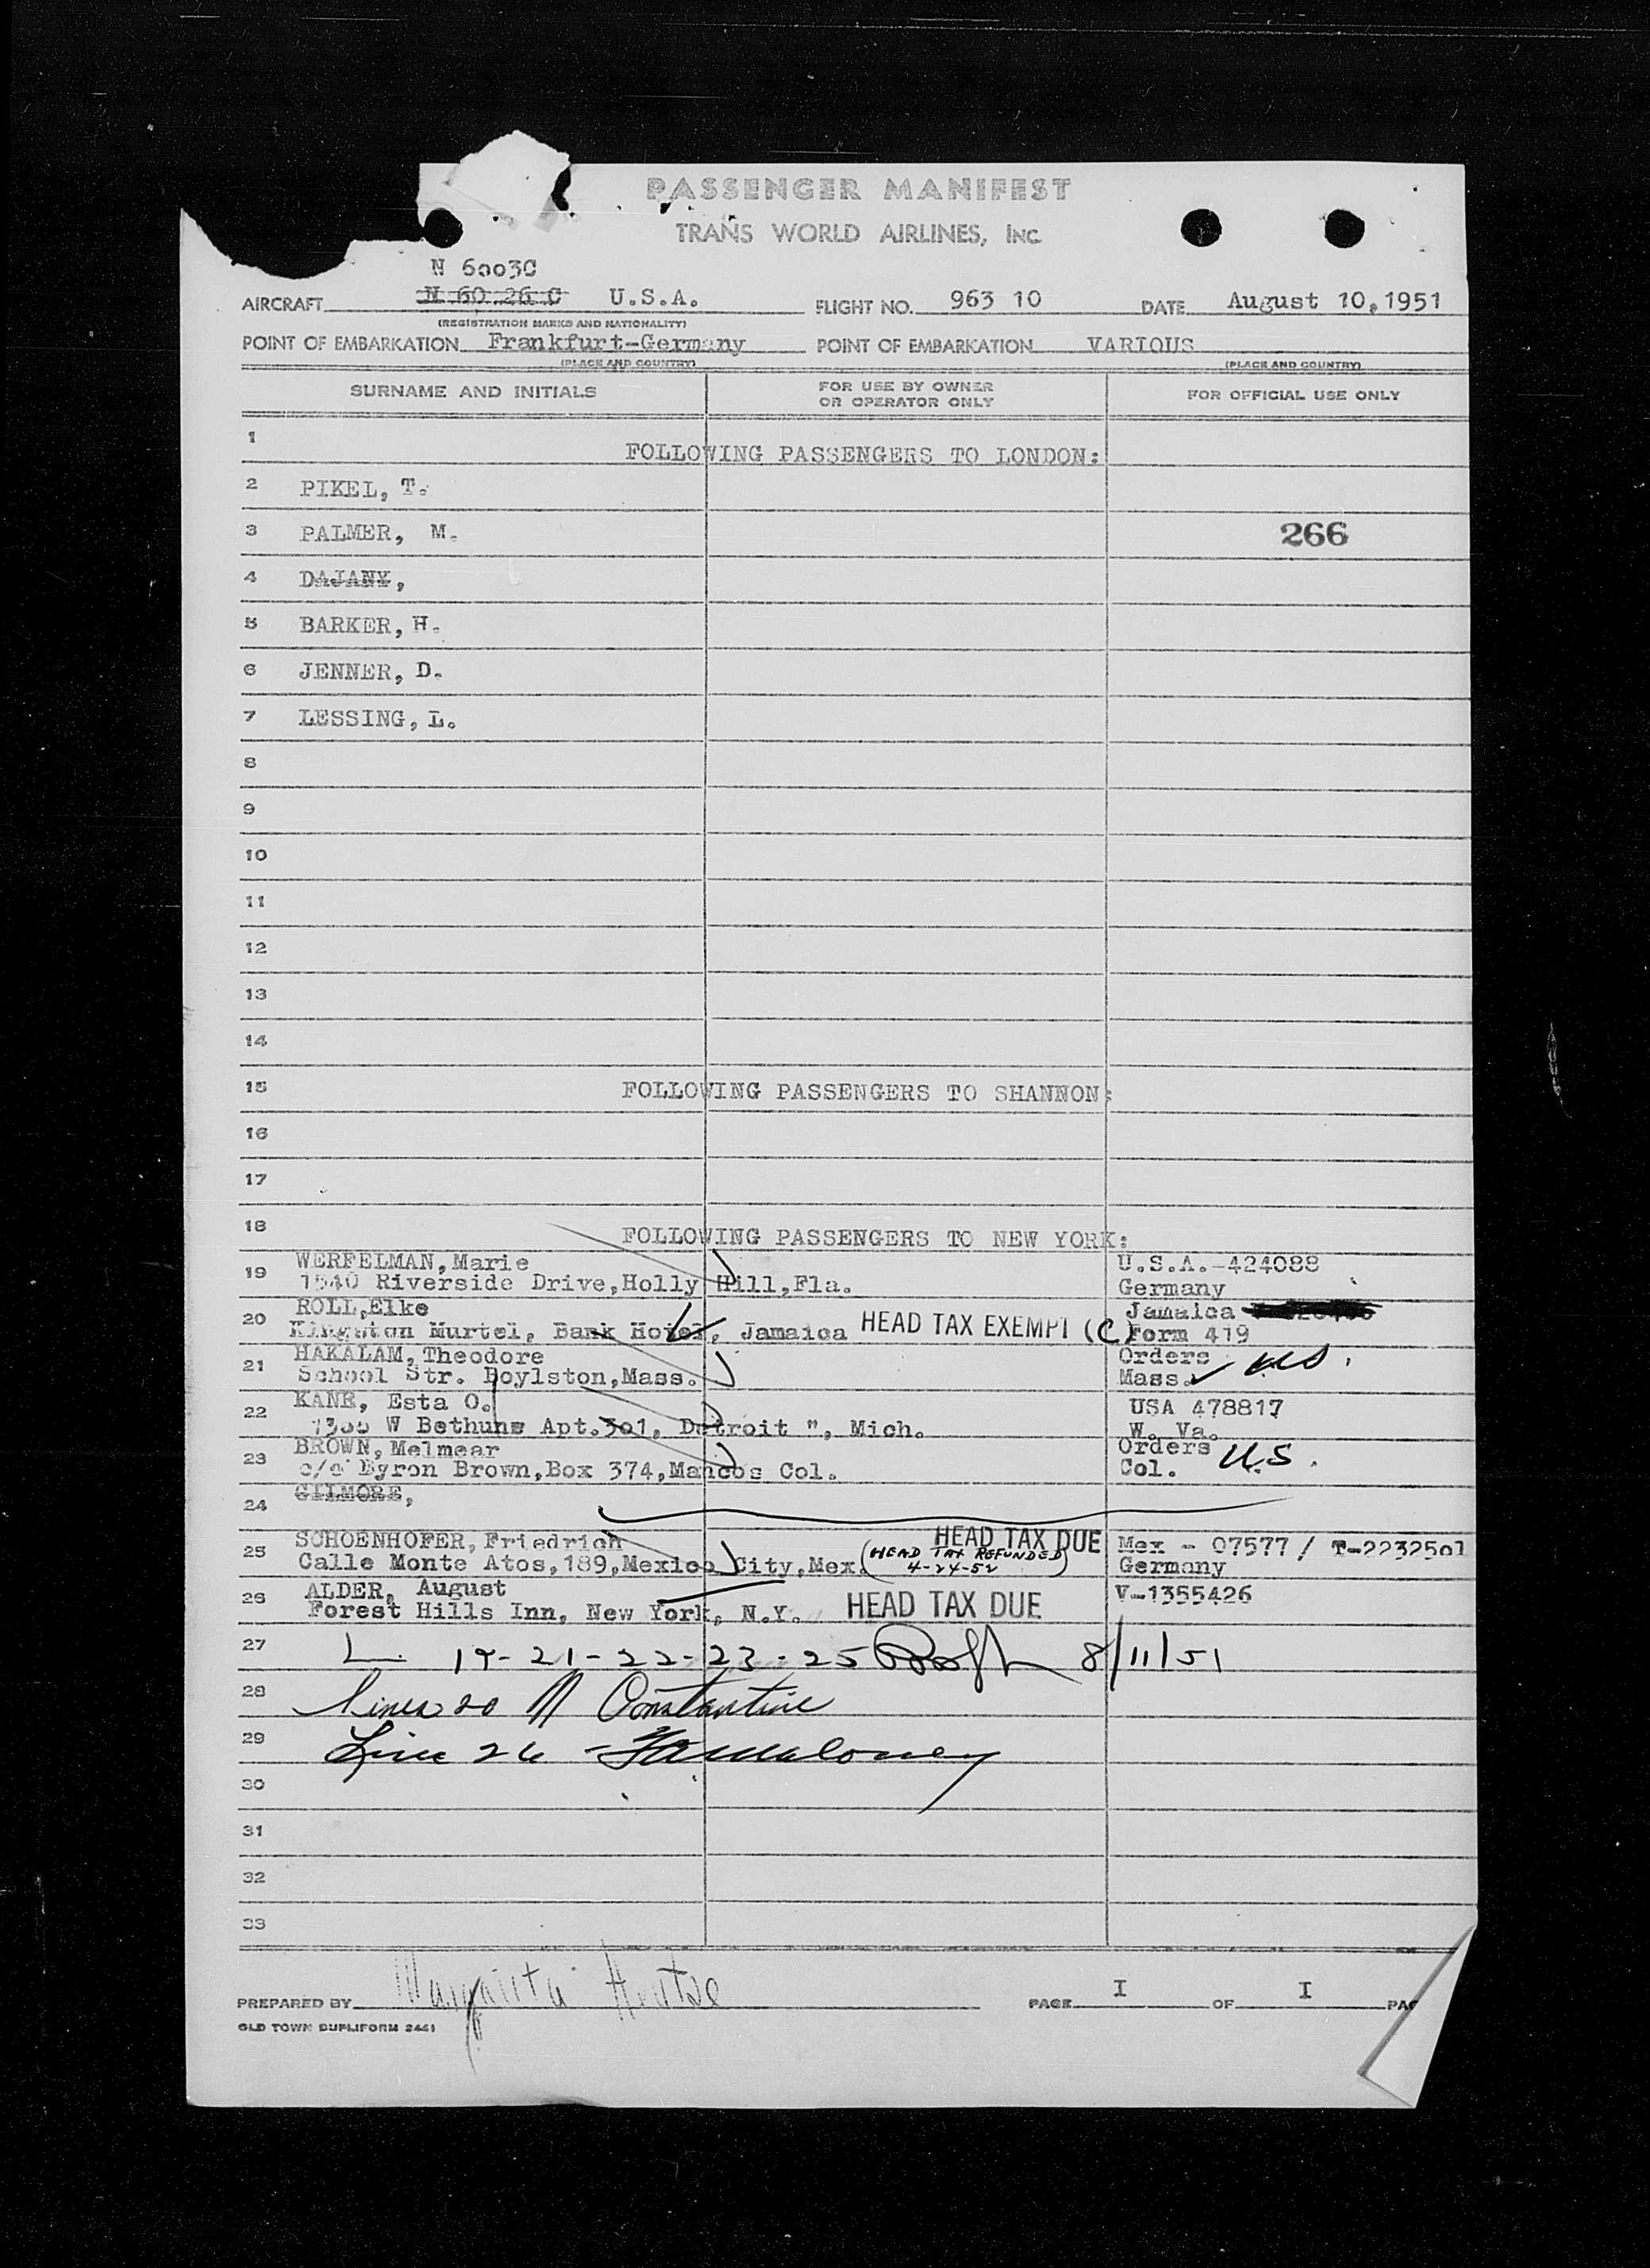 PASSENGER MANIFEST
TRANS WORLD AIRLINES, INC
N 6003C
AIRCRAFT N 60 26 C U.S.A. FLIGHT NO. 963 10 DATE August 10, 1951
(REGISTRATION MARKS AND NATIONALITY)
POINT OF EMBARKATION Frankfurt-Germany POINT OF EMBARKATION VARIOUS
(PLACE AND COUNTRY) (PLACE AND COUNTRY)
SURNAME AND INITIALS FOR USE BY OWNER OR OPERATOR ONLY FOR OFFICIAL USE ONLY
1 FOLLOWING PASSENGERS TO LONDON:
2 PIKEL, T.
3 PALMER, M. 266
4 DAJANY,
5 BARKER, H.
6 JENNER, D.
7 LESSING, L.
8
9
10
11
12
13
14
15 FOLLOWING PASSENGERS TO SHANNON:
16
17
18 FOLLOWING PASSENGERS TO NEW YORK:
19 WERFELMAN, Marie U.S.A.-424088
1540 Riverside Drive, Holly Hill, Fla. Germany
20 ROLL, Elke Jamaica
Kingston Murtel, Bank Hotel, Jamaica HEAD TAX EXEMPT (C) Form 419
21 HAKALAM, Theodore Orders
School Str. Boylston, Mass. Mass. US.
22 KANE, Esta O. USA 478817
1355 W Bethune Apt. 301, Detroit ", Mich. W. Va.
23 BROWN, Melmear Orders
c/o Byron Brown, Box 374, Mancos Col. Col. U.S.
24 GILMORE,
25 SCHOENHOFER, Friedrich HEAD TAX DUE Mex - 07577 / T-2232501
Calle Monte Atos, 189, Mexico City, Mex. (HEAD TAX REFUNDED) Germany
4-24-52
26 ALDER, August V-1355426
Forest Hills Inn, New York, N.Y. HEAD TAX DUE
27 L. 19-21-22-23-25 8/11/51
28 Lines 20 N Constantine
29 Line 26 - Maloney
30
31
32
33
PREPARED BY Margarita PAGE I OF I PAG
OLD TOWN DUPLIFORM 2461